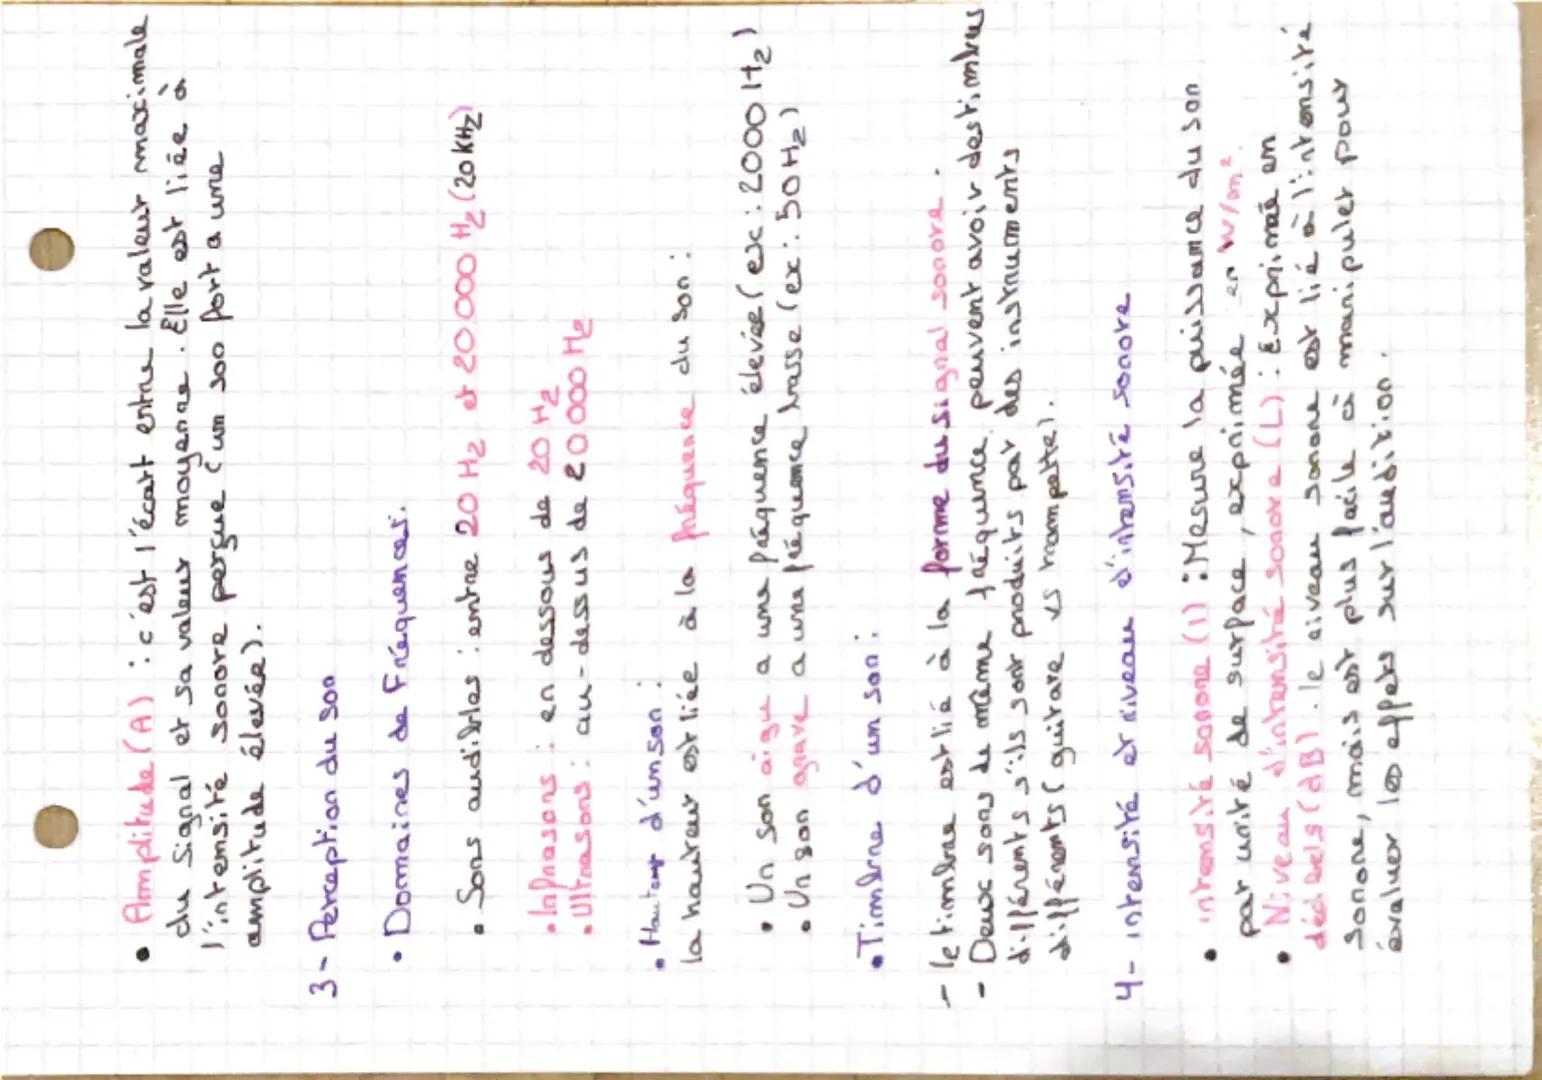 • Amplitude (A) : c'est l'écart entre la valeur maximale
du signal et sa valeur moyenne. Elle est liée à
l'intensité sonore perçue (um son fort a une
amplitude élevée).
3- Perception du son
• Domaines de Fréquences.
• Sons audibles : entre 20 Hz et 20.000 Hz (20 KHz)
• Infrasons : en dessous de 20 Hz
• Ultrasons : au-dessus de 20000 Hz
• Hauteur d'un son :
la hauteur est liée à la fréquence du son :
• Un son aigu a une fréquence élevée (ex : 2000 Hz)
• Un son grave a une fréquence basse (ex : 50 Hz)
• Timbre d'un son :
- le timbre est lié à la forme du signal sonore.
- Deux sons de même fréquence peuvent avoir des timbres
différents s'ils sont produits par des instruments
différents (guitare vs trompette).
4- intensité et niveau d'intensité sonore
• intensité sonore (I) : Mesure la puissance du son
par unité de surface, exprimée en W/m².
• Niveau d'intensité sonore (L) : Exprimée en
décibels (dB). le niveau sonore est lié à l'intensité
sonore, mais est plus facile à manipuler pour
évaluer les effets sur l'audition.